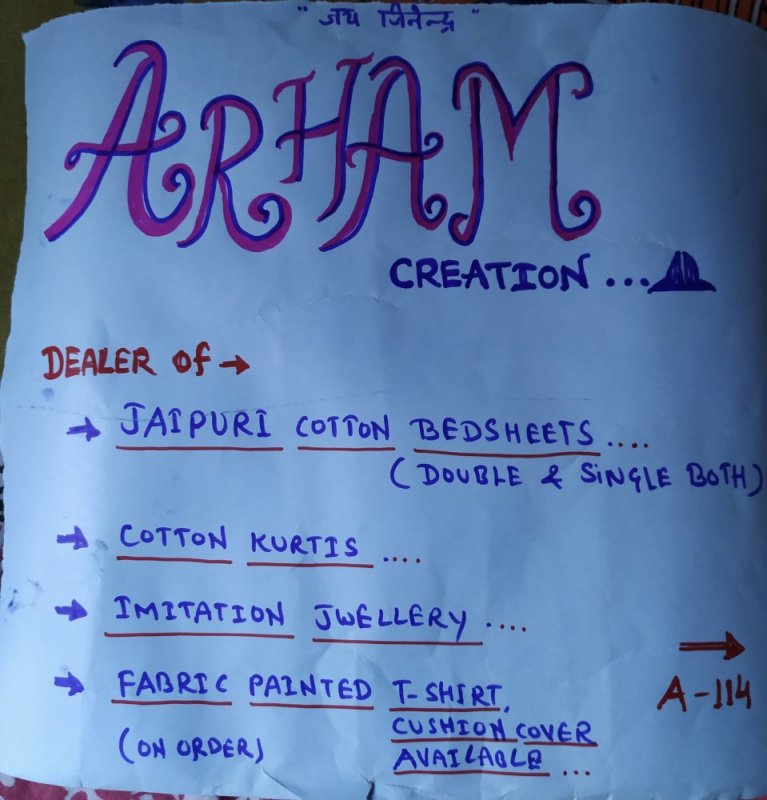 "जय जिनेन्द्र"
ARHAM
CREATION...
DEALER of →
→ JAIPURI COTTON BEDSHEETS....
(DOUBLE & SiNGLE BOTH)
→ COTTON KURTIS ....
→ IMITATION JWELLERY ....
→ FABRIC PAINTED T-SHIRT,
(ON ORDER) CUSHION COVER
AVAILABLE ...
→
A-114